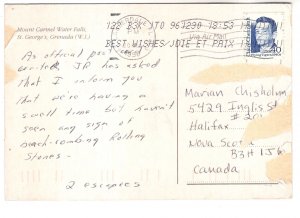 Mount Carmel Water Falls,
St. George's, Grenada (W.I.)
BEST WISHES/JOIE ET PAIX
Via Air Mail
As official post
writer, JR has asked
that I inform you
that we're having a
swell time but haven't
seen any sign of
beach-combing Rolling
Stones.
2 escapees
Marian Chisholm
5429 Inglis St
Halifax
Nova Scotia
B3H 1J6
Canada